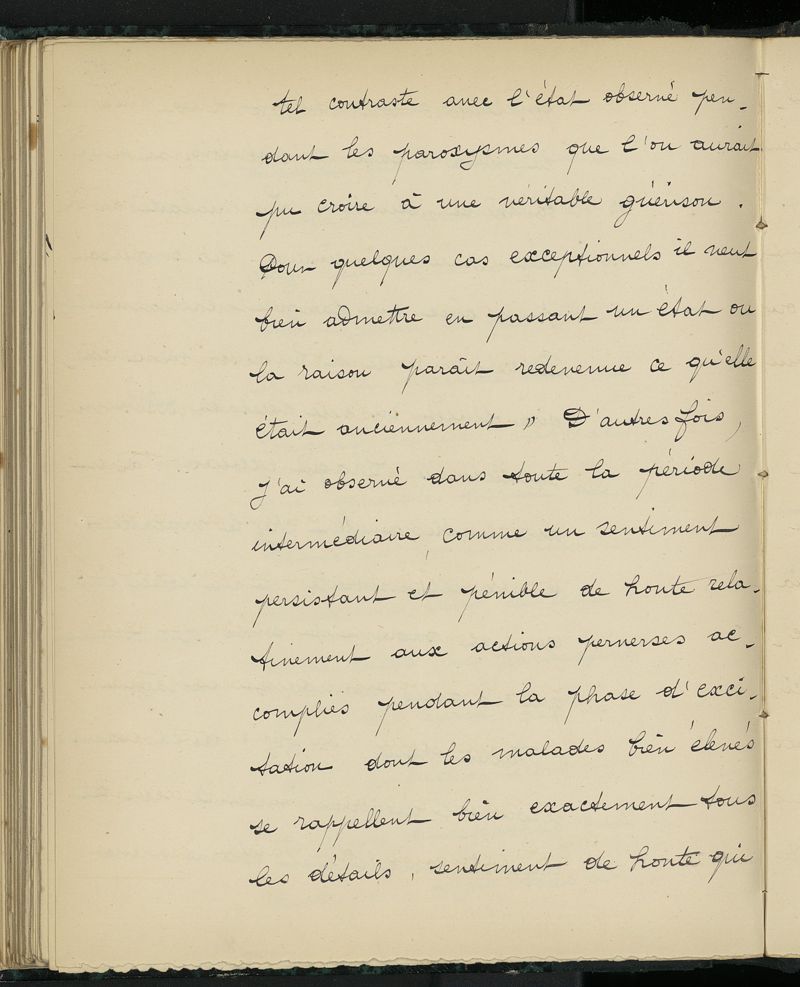 tel contraste avec l'état observé pen-
dant les paroxysmes que l'on aurait
pu croire à une véritable guérison.
Pour quelques cas exceptionnels il veut
bien admettre en passant un état ou
la raison paraît redevenue ce qu'elle
était anciennement » D'autres fois,
j'ai observé dans toute la période
intermédiaire, comme un sentiment
persistant et pénible de honte rela-
tivement aux actions perverses ac-
complies pendant la phase d'exci-
tation dont les malades bien élevés
se rappellent bien exactement tous
les détails, sentiment de honte qui